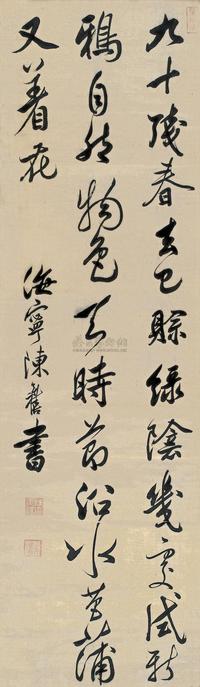 九十殘春去已賒綠陰幾處試新
鴉自然物色天時節沼水菖蒲
又着花
海寧陳奕禧書